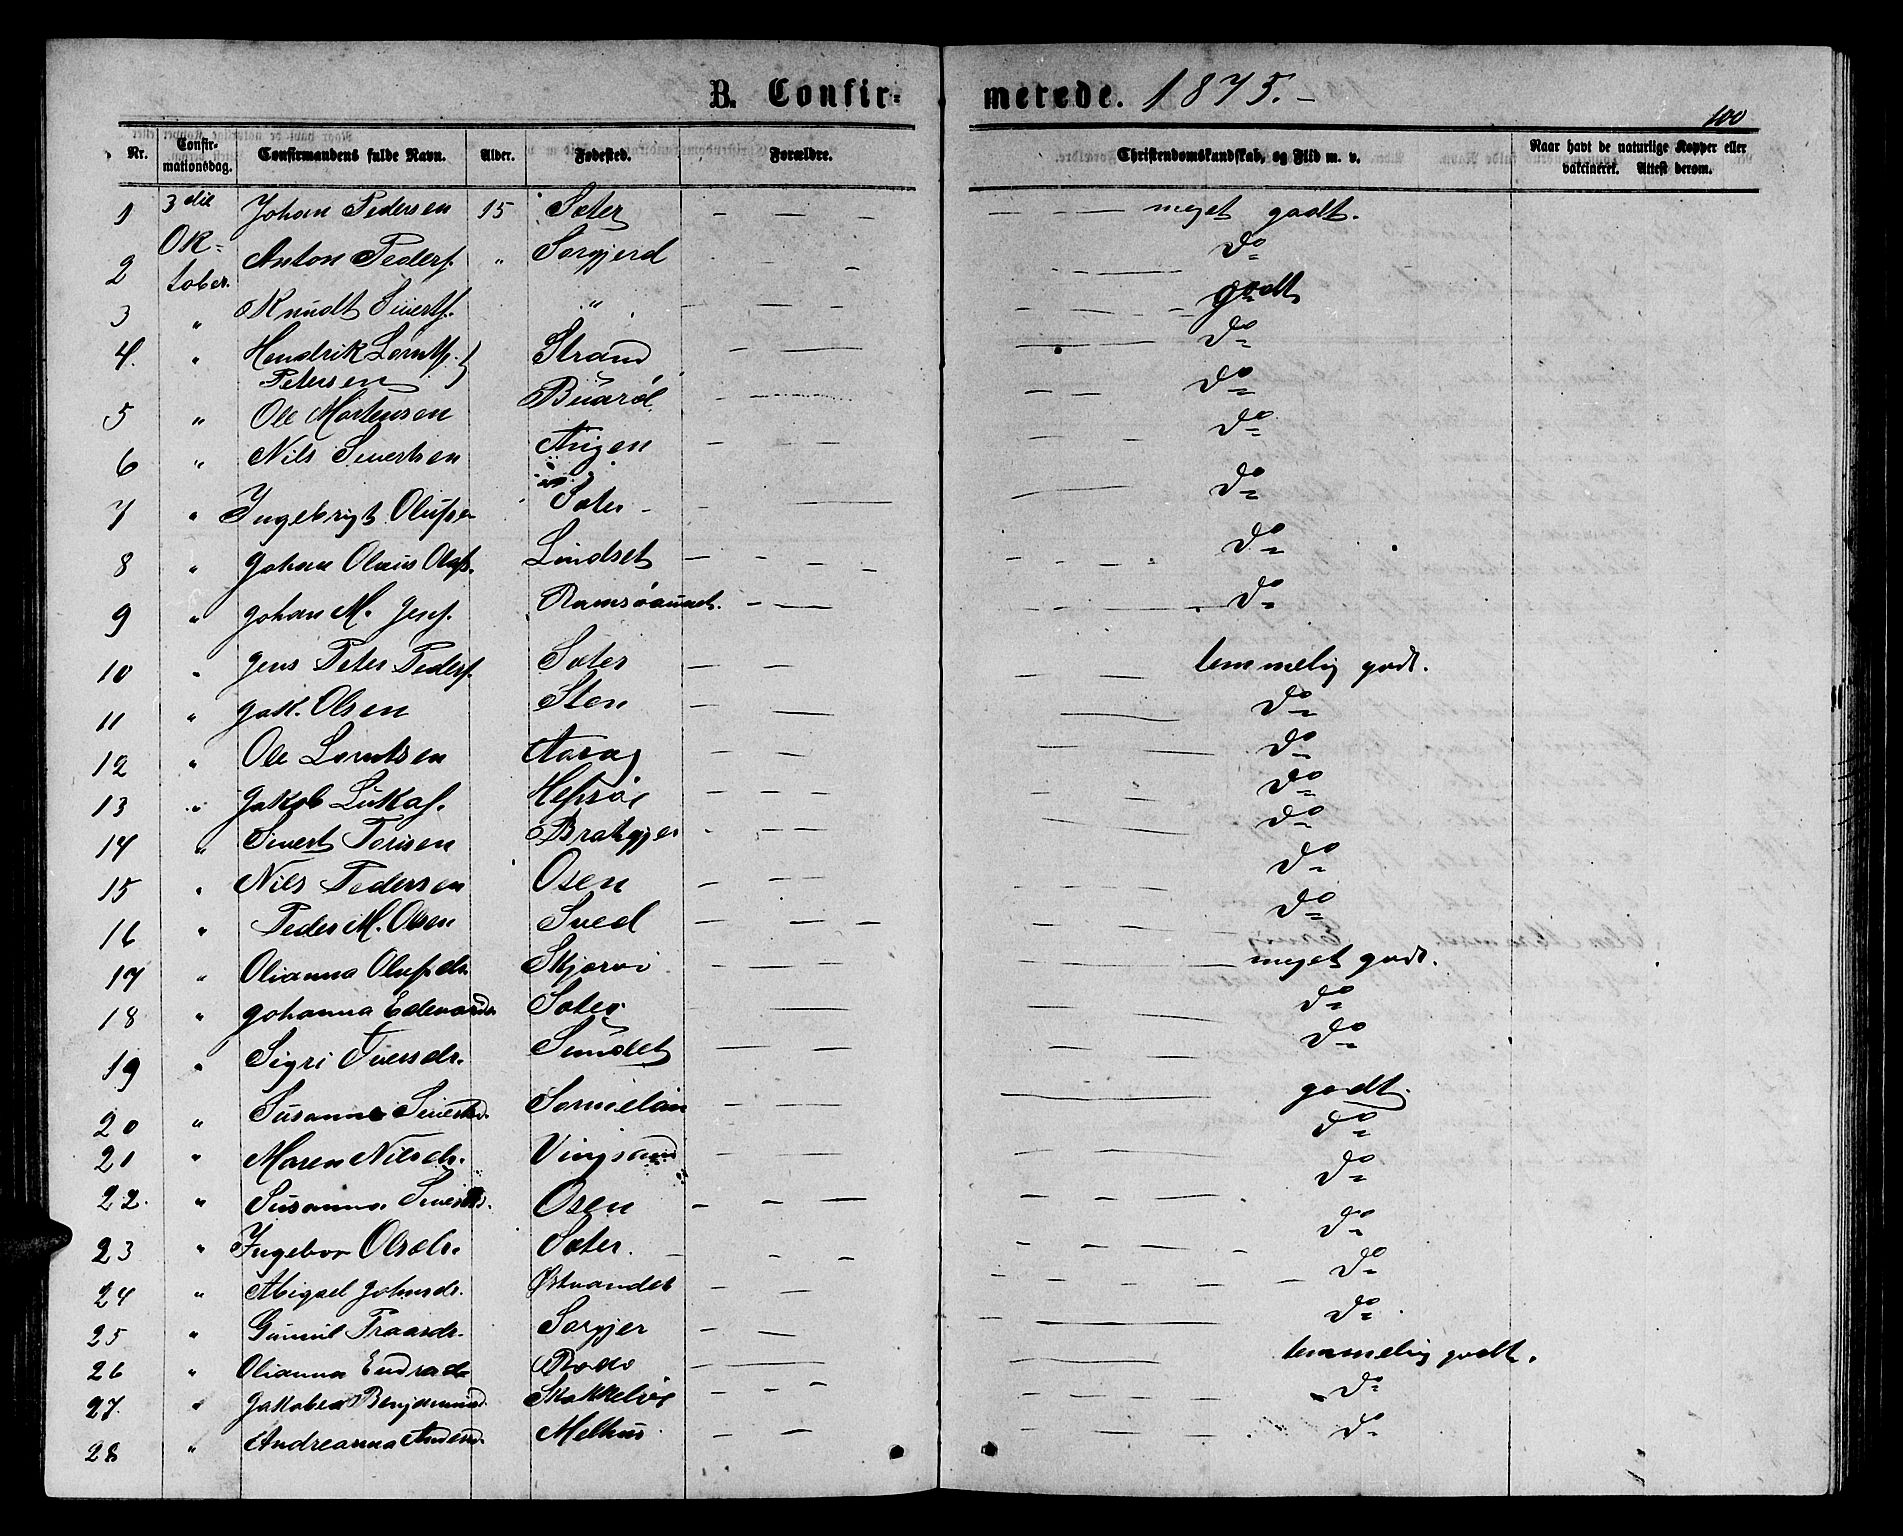 B. Confir-merede. 1875.-
100
Nr. Confir-mationsdag. Confirmandens fulde Navn. Alder. Fødested. Forældre. Christendomskundskab, og Flid m. v. Naar havt de naturlige Kopper eller vaccineret. Attest derom.
1 3die Johan Pedersen 15 Sæter — — — meget godt.
2 Ok=tober. Anton Peders. " Sørgjerd — do
3 " Knudt Siverts. " — — — godt
4. " Hendrik Lornts. Petersen Strand — — do
5 " Ole Mortensen Buarøl — do
6 " Nils Sivertsen Angen — — do
7 " Ingebrigt Olufsen Sæter — — do
8 " Johan Olaus Olufs. Lindset — — — do
9 " Johan M. Jens. Ramsøsundet. — — do
10 " Jens Peter Peders. Sæter — — temmelig godt.
11 " Jak. Olsen Sten — — do
12 " Ole Lorntsen Aarag — — do
13 " Jakob Lukas. Hepsøe — — — do
14 " Sivert Torisen Bratgjer — — do
15 " Nils Pedersen Osen — — — do
16 " Peder M. Olsen Sved — — — do
17 " Olianna Olufsdr. Skjærvø — — — meget godt.
18 " Johanna Edevardsdr Sæter — — do
19 " Sigri Iversdr. Sundet — — — do
20 " Susanna Sivertsd. Sørmelan — — — godt.
21 " Maren Nilsdr. Vingsand — — do
22. " Susanna Sivertsd. Osen — — — do
23 " Ingebor Olsdr. Sæter. — — — do
24 " Abigael Johnsdr. Østvandet — — — do
25 " Gunnil Traardr. Sørgjer — — — do
26 " Olianna Endradr Rødø — — temmelig godt.
27. " Jakobea Benjamind. Skokkeløe — — — do
28 " Andreanna Andersd. Melhus — — do